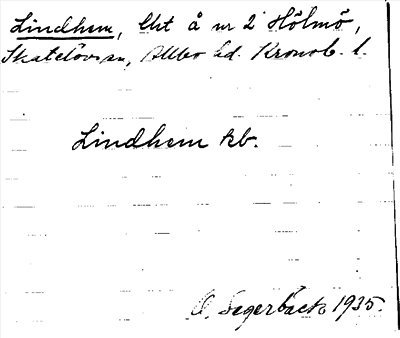 Lindhem, lht å nr 2 Hölmö,
Skatelövs sn, Allbo hd. Kronob. l.
Lindhem kb.
O. Segerbäck 1935.